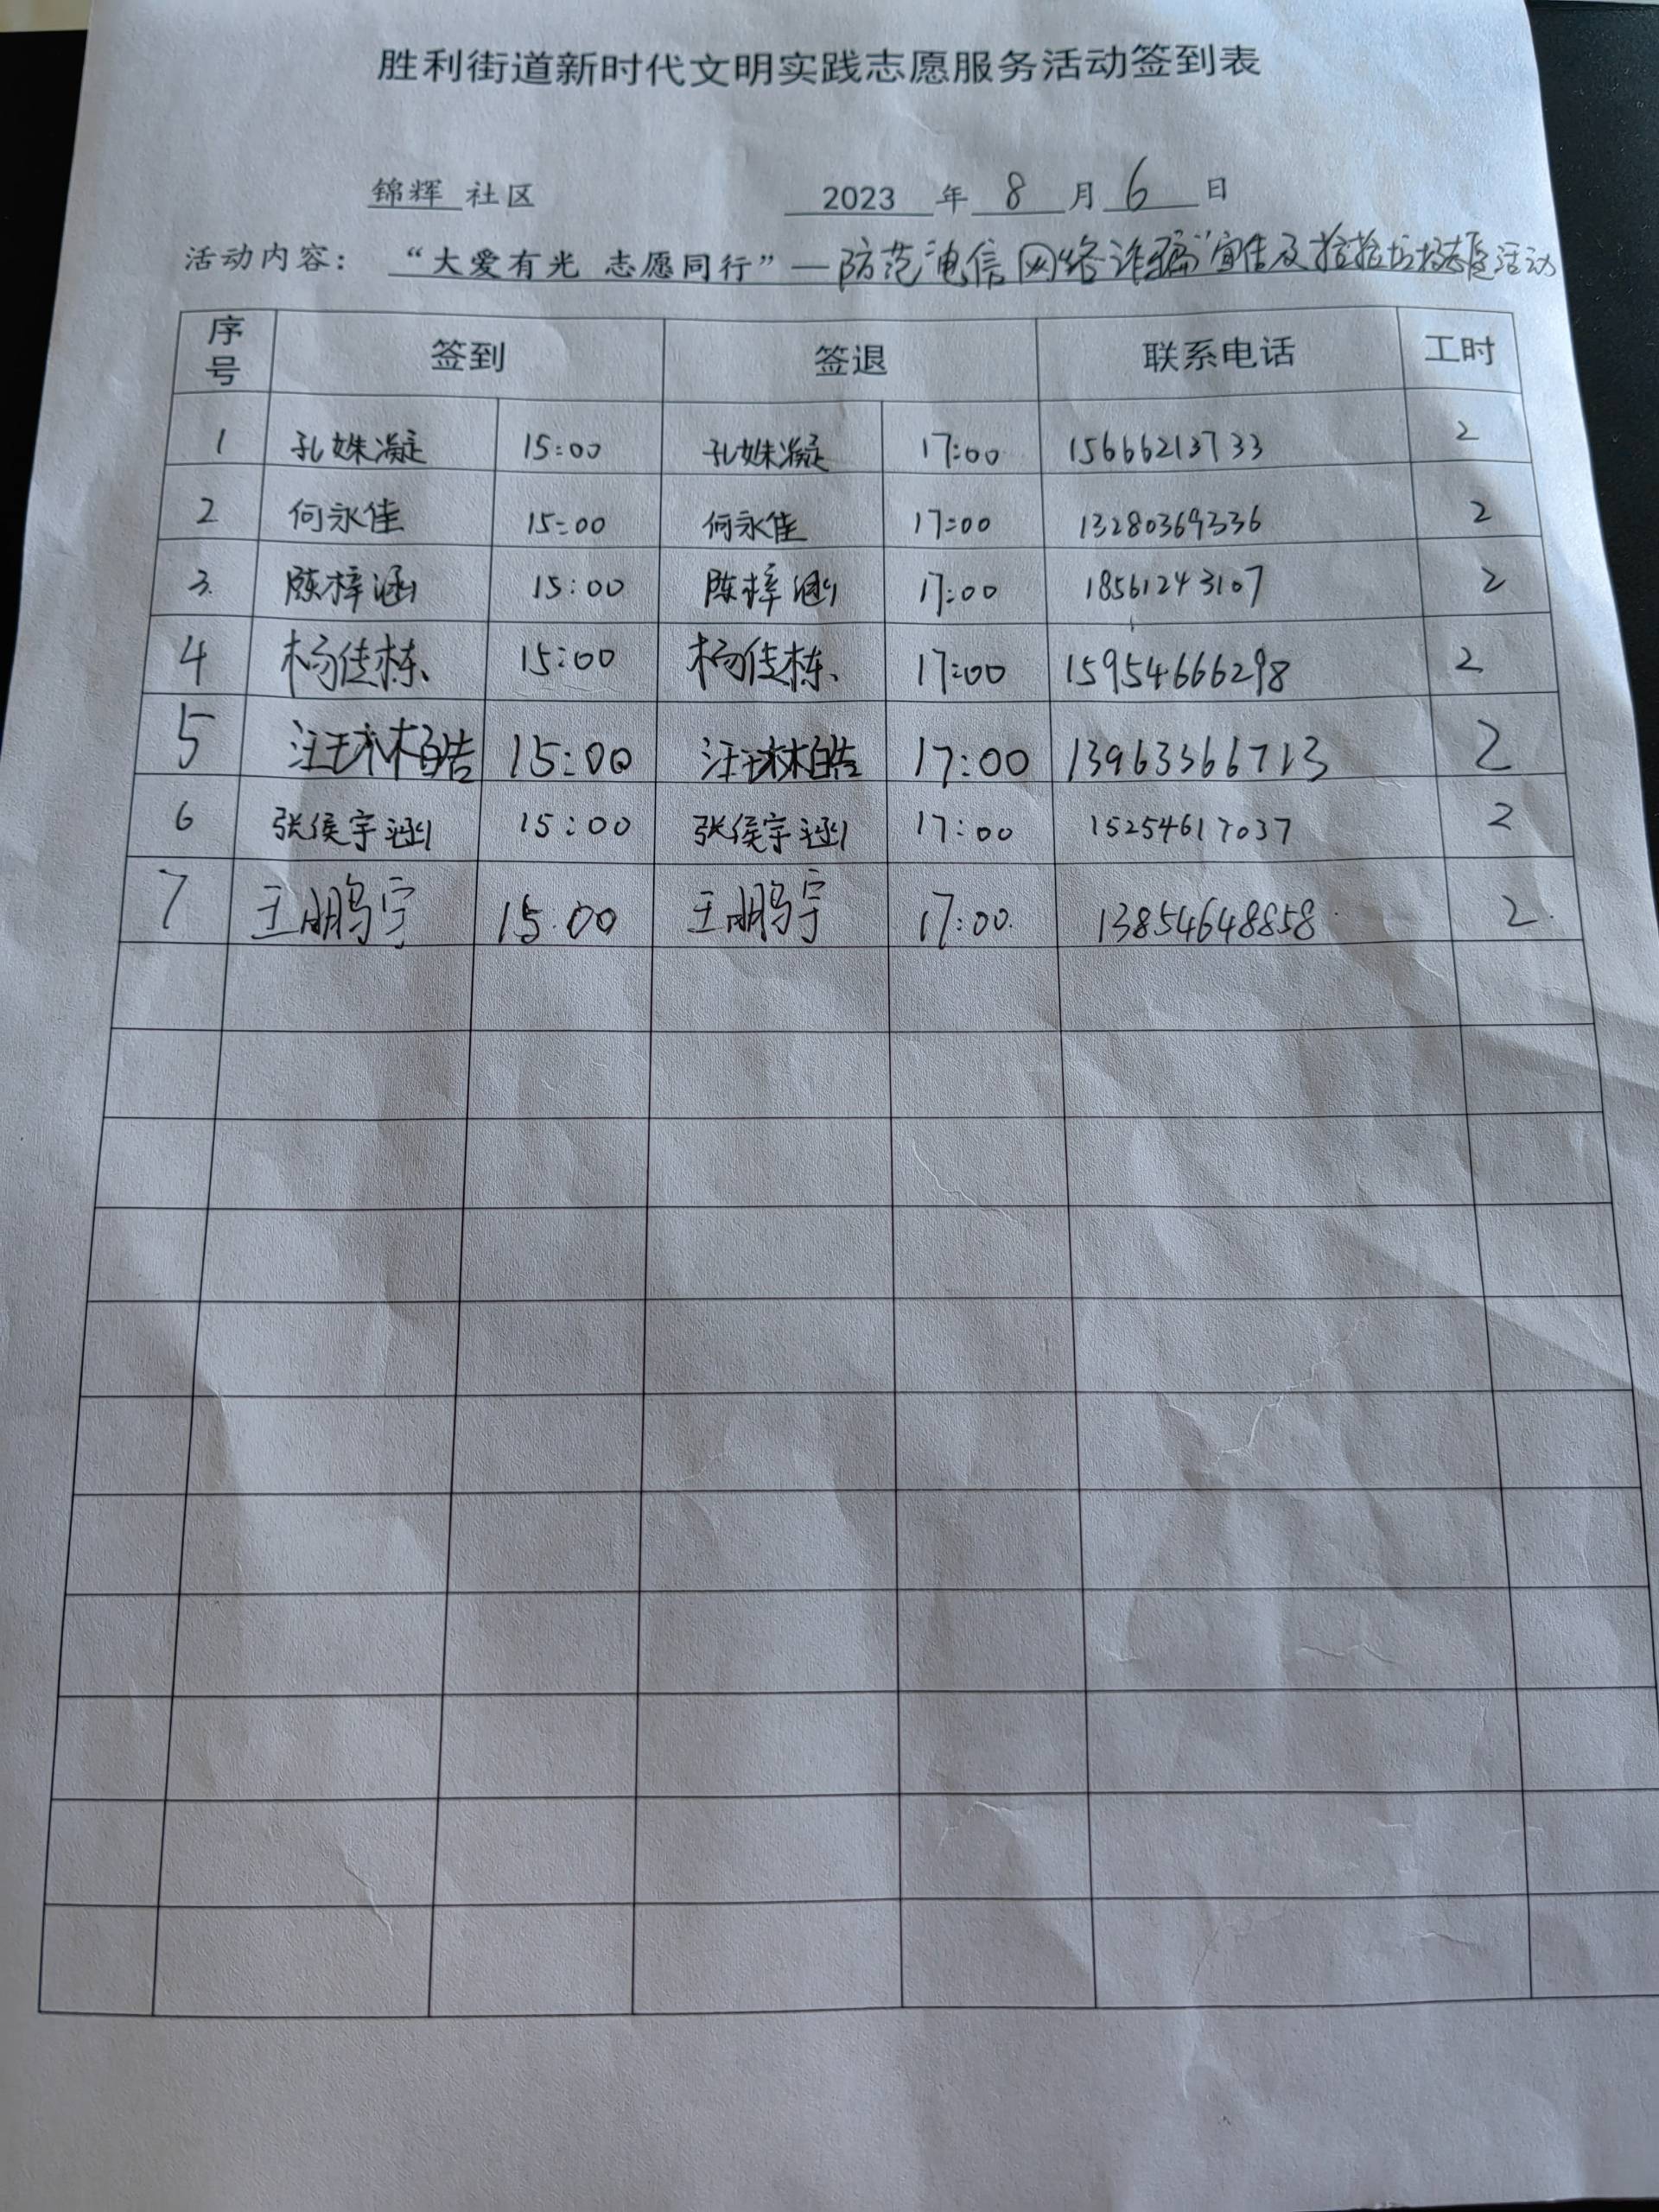 胜利街道新时代文明实践志愿服务活动签到表
锦辉 社区 2023 年 8 月 6 日
活动内容： “大爱有光 志愿同行”—防范电信网络诈骗”宣传及捡拾垃圾志愿活动
序号 签到 签退 联系电话 工时
1 孔姝凝 15:00 孔姝凝 17:00 15666213733 2
2 何永佳 15:00 何永佳 17:00 13280369336 2
3. 陈梓涵 15:00 陈梓涵 17:00 18561243107 2
4 杨佳栋、 15:00 杨佳栋、 17:00 15954666298 2
5 15:00 17:00 13963366713 2
6 张侯宇涵 15:00 张侯宇涵 17:00 15254617037 2
7 王鹏宇 15.00 王鹏宇 17:00. 13854648858. 2.